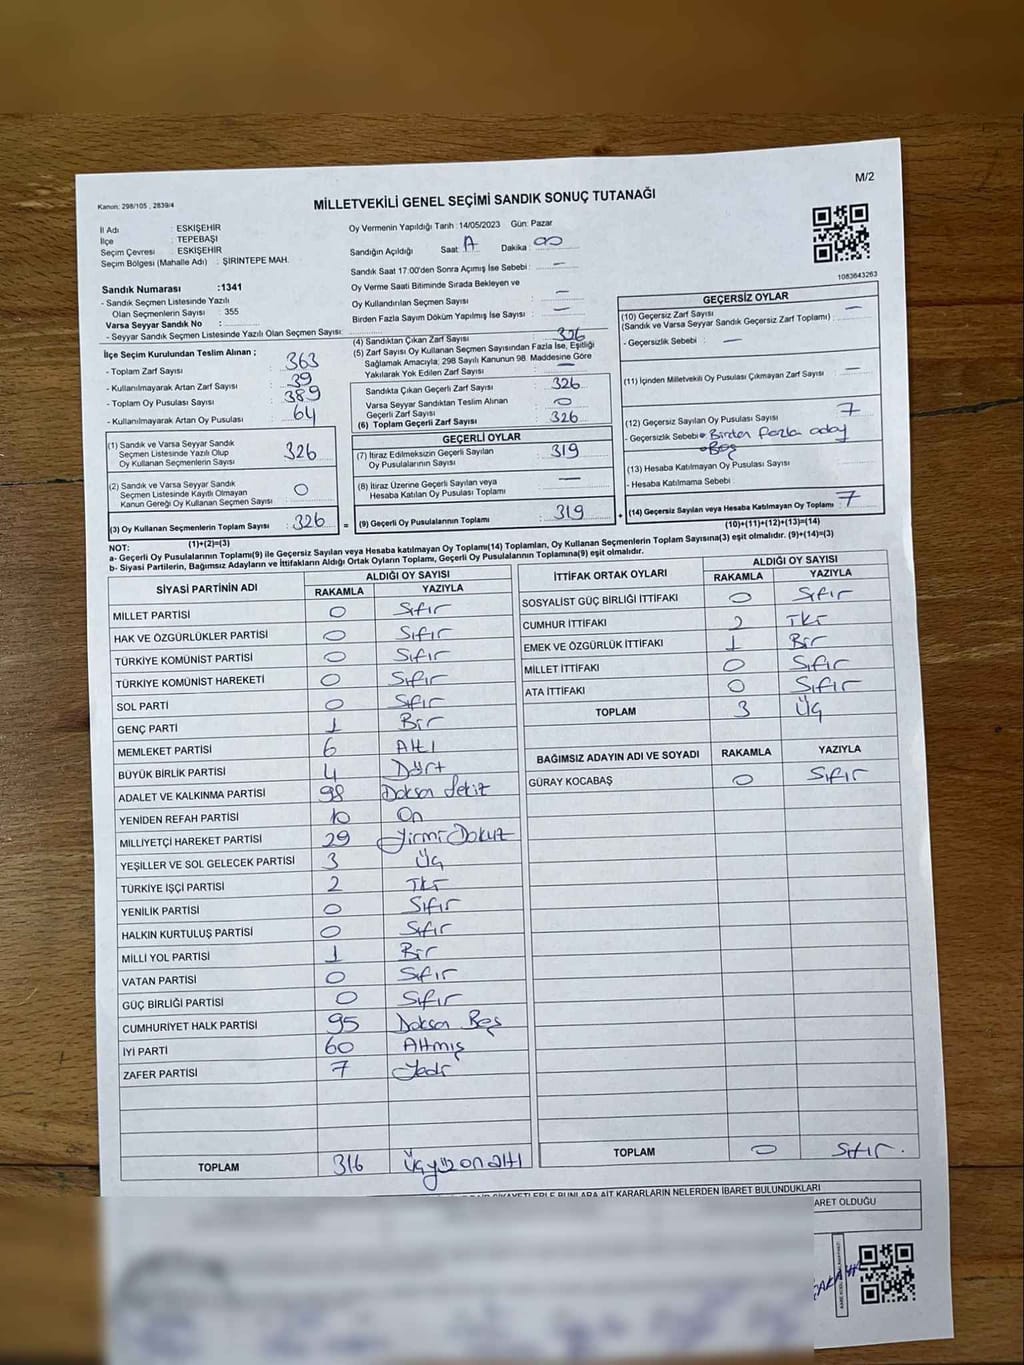 M/2
Kanon: 298/105 , 2839/4
MİLLETVEKİLİ GENEL SEÇİMİ SANDIK SONUÇ TUTANAĞI
İl Adı : ESKİŞEHİR
İlçe : TEPEBAŞI
Seçim Çevresi : ESKİŞEHİR
Seçim Bölgesi (Mahalle Adı) : ŞİRİNTEPE MAH.
Sandık Numarası :1341
- Sandık Seçmen Listesinde Yazılı
Olan Seçmenlerin Sayısı : 355
Varsa Seyyar Sandık No :
- Seyyar Sandık Seçmen Listesinde Yazılı Olan Seçmen Sayısı:
İlçe Seçim Kurulundan Teslim Alınan ;
- Toplam Zarf Sayısı : 363
- Kullanılmayarak Artan Zarf Sayısı : 39
- Toplam Oy Pusulası Sayısı : 389
- Kullanılmayarak Artan Oy Pusulası : 64
(1) Sandık ve Varsa Seyyar Sandık
Seçmen Listesinde Yazılı Olup
Oy Kullanan Seçmenlerin Sayısı : 326
(2) Sandık ve Varsa Seyyar Sandık
Seçmen Listesinde Kayıtlı Olmayan
Kanun Gereği Oy Kullanan Seçmen Sayısı : 0
(3) Oy Kullanan Seçmenlerin Toplam Sayısı : 326 =
(1)+(2)=(3)
Oy Vermenin Yapıldığı Tarih : 14/05/2023 Gün: Pazar
Sandığın Açıldığı Saat: Dakika :
Sandık Saat 17.00'den Sonra Açımış İse Sebebi : —
Oy Verme Saati Bitiminde Sırada Bekleyen ve
Oy Kullandırılan Seçmen Sayısı : —
Birden Fazla Sayım Döküm Yapılmış İse Sayısı : —
(4) Sandıktan Çıkan Zarf Sayısı : 326
(5) Zarf Sayısı Oy Kullanan Seçmen Sayısından Fazla İse, Eşitliği
Sağlamak Amacıyla; 298 Sayılı Kanunun 98. Maddesine Göre
Yakılarak Yok Edilen Zarf Sayısı : —
Sandıkta Çıkan Geçerli Zarf Sayısı : 326
Varsa Seyyar Sandıktan Teslim Alınan
Geçerli Zarf Sayısı : 0
(6) Toplam Geçerli Zarf Sayısı : 326
GEÇERLİ OYLAR
(7) İtiraz Edilmeksizin Geçerli Sayılan
Oy Pusulalarının Sayısı : 319
(8) İtiraz Üzerine Geçerli Sayılan veya
Hesaba Katılan Oy Pusulası Toplamı : —
(9) Geçerli Oy Pusulalarının Toplamı : 319 +
1083643263
GEÇERSİZ OYLAR
(10) Geçersiz Zarf Sayısı
(Sandık ve Varsa Seyyar Sandık Geçersiz Zarf Toplamı) : —
- Geçersizlik Sebebi : —
(11) İçinden Milletvekili Oy Pusulası Çıkmayan Zarf Sayısı : —
(12) Geçersiz Sayılan Oy Pusulası Sayısı : 7
- Geçersizlik Sebebi • Birden fazla aday
• Boş
(13) Hesaba Katılmayan Oy Pusulası Sayısı :
- Hesaba Katılmama Sebebi :
(14) Geçersiz Sayılan veya Hesaba Katılmayan Oy Toplamı : 7
(10)+(11)+(12)+(13)=(14)
NOT:
a- Geçerli Oy Pusulasının Toplamı(9) ile Geçersiz Sayılan veya Hesaba katılmayan Oy Toplamı(14) Toplamları, Oy Kullanan Seçmenlerin Toplam Sayısına(3) eşit olmalıdır. (9)+(14)=(3)
b- Siyasi Partilerin, Bağımsız Adayların ve İttifakların Aldığı Ortak Oyların Toplamı, Geçerli Oy Pusulalarının Toplamına(9) eşit olmalıdır.
SİYASİ PARTİNİN ADI ALDIĞI OY SAYISI
RAKAMLA YAZIYLA
MİLLET PARTİSİ 0 Sıfır
HAK VE ÖZGÜRLÜKLER PARTİSİ 0 Sıfır
TÜRKİYE KOMÜNİST PARTİSİ 0 Sıfır
TÜRKİYE KOMÜNİST HAREKETİ 0 Sıfır
SOL PARTİ 0 Sıfır
GENÇ PARTİ 1 Bir
MEMLEKET PARTİSİ 6 Altı
BÜYÜK BİRLİK PARTİSİ 4 Dört
ADALET VE KALKINMA PARTİSİ 98 Doksan Sekiz
YENİDEN REFAH PARTİSİ 10 On
MİLLİYETÇİ HAREKET PARTİSİ 29 Yirmi Dokuz
YEŞİLLER VE SOL GELECEK PARTİSİ 3 Üç
TÜRKİYE İŞÇİ PARTİSİ 2 İki
YENİLİK PARTİSİ 0 Sıfır
HALKIN KURTULUŞ PARTİSİ 0 Sıfır
MİLLİ YOL PARTİSİ 1 Bir
VATAN PARTİSİ 0 Sıfır
GÜÇ BİRLİĞİ PARTİSİ 0 Sıfır
CUMHURİYET HALK PARTİSİ 95 Doksan Beş
İYİ PARTİ 60 Altmış
ZAFER PARTİSİ 7 Yedi
TOPLAM 316 Üçyüz onaltı
İTTİFAK ORTAK OYLARI ALDIĞI OY SAYISI
RAKAMLA YAZIYLA
SOSYALİST GÜÇ BİRLİĞİ İTTİFAKI 0 Sıfır
CUMHUR İTTİFAKI 2 İki
EMEK VE ÖZGÜRLÜK İTTİFAKI 1 Bir
MİLLET İTTİFAKI 0 Sıfır
ATA İTTİFAKI 0 Sıfır
TOPLAM 3 Üç
BAĞIMSIZ ADAYIN ADI VE SOYADI RAKAMLA YAZIYLA
GÜRAY KOCABAŞ 0 Sıfır
TOPLAM 0 Sıfır.
KARARLARIN NELERDEN İBARET BULUNDUKLARI
OLDUĞU